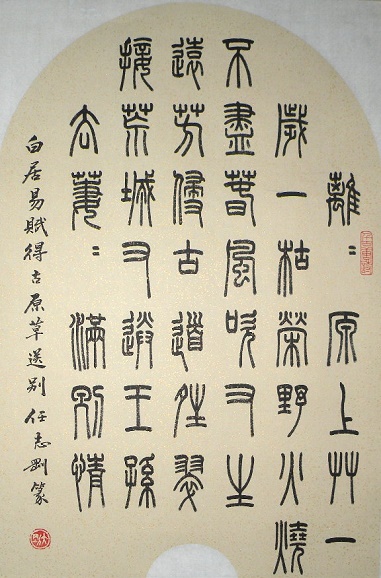 離〻原上艸一
歲一枯榮野火燒
不盡春風吹又生
遠芳侵古道晴翠
接荒城又送王孫
去萋〻滿別情
白居易賦得古原草送別 任志剛篆